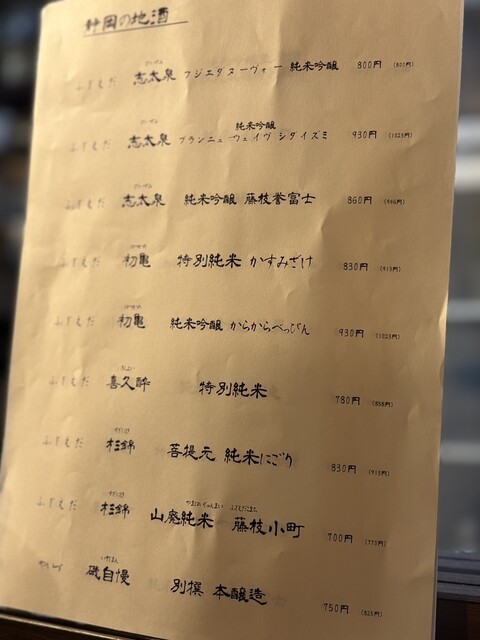 静岡の地酒
ふじえだ 志太泉 フジエダヌーヴォー 純米吟醸 800円
純米吟醸
ふじえだ 志太泉 ブランニューウェイヴ シダイズミ 930円 (1023円)
ふじえだ 志太泉 純米吟醸 藤枝誉富士 860円 (946円)
ふじえだ 初亀 特別純米 かすみざけ 830円 (913円)
ふじえだ 初亀 純米吟醸 からからべっぴん 930円 (1023円)
ふじえだ 喜久酔 特別純米 780円 (858円)
ふじえだ 杉錦 菩提元 純米にごり 830円 (913円)
ふじえだ 杉錦 山廃純米 藤枝小町 700円 (770円)
やいづ 磯自慢 別撰 本醸造 750円 (825円)